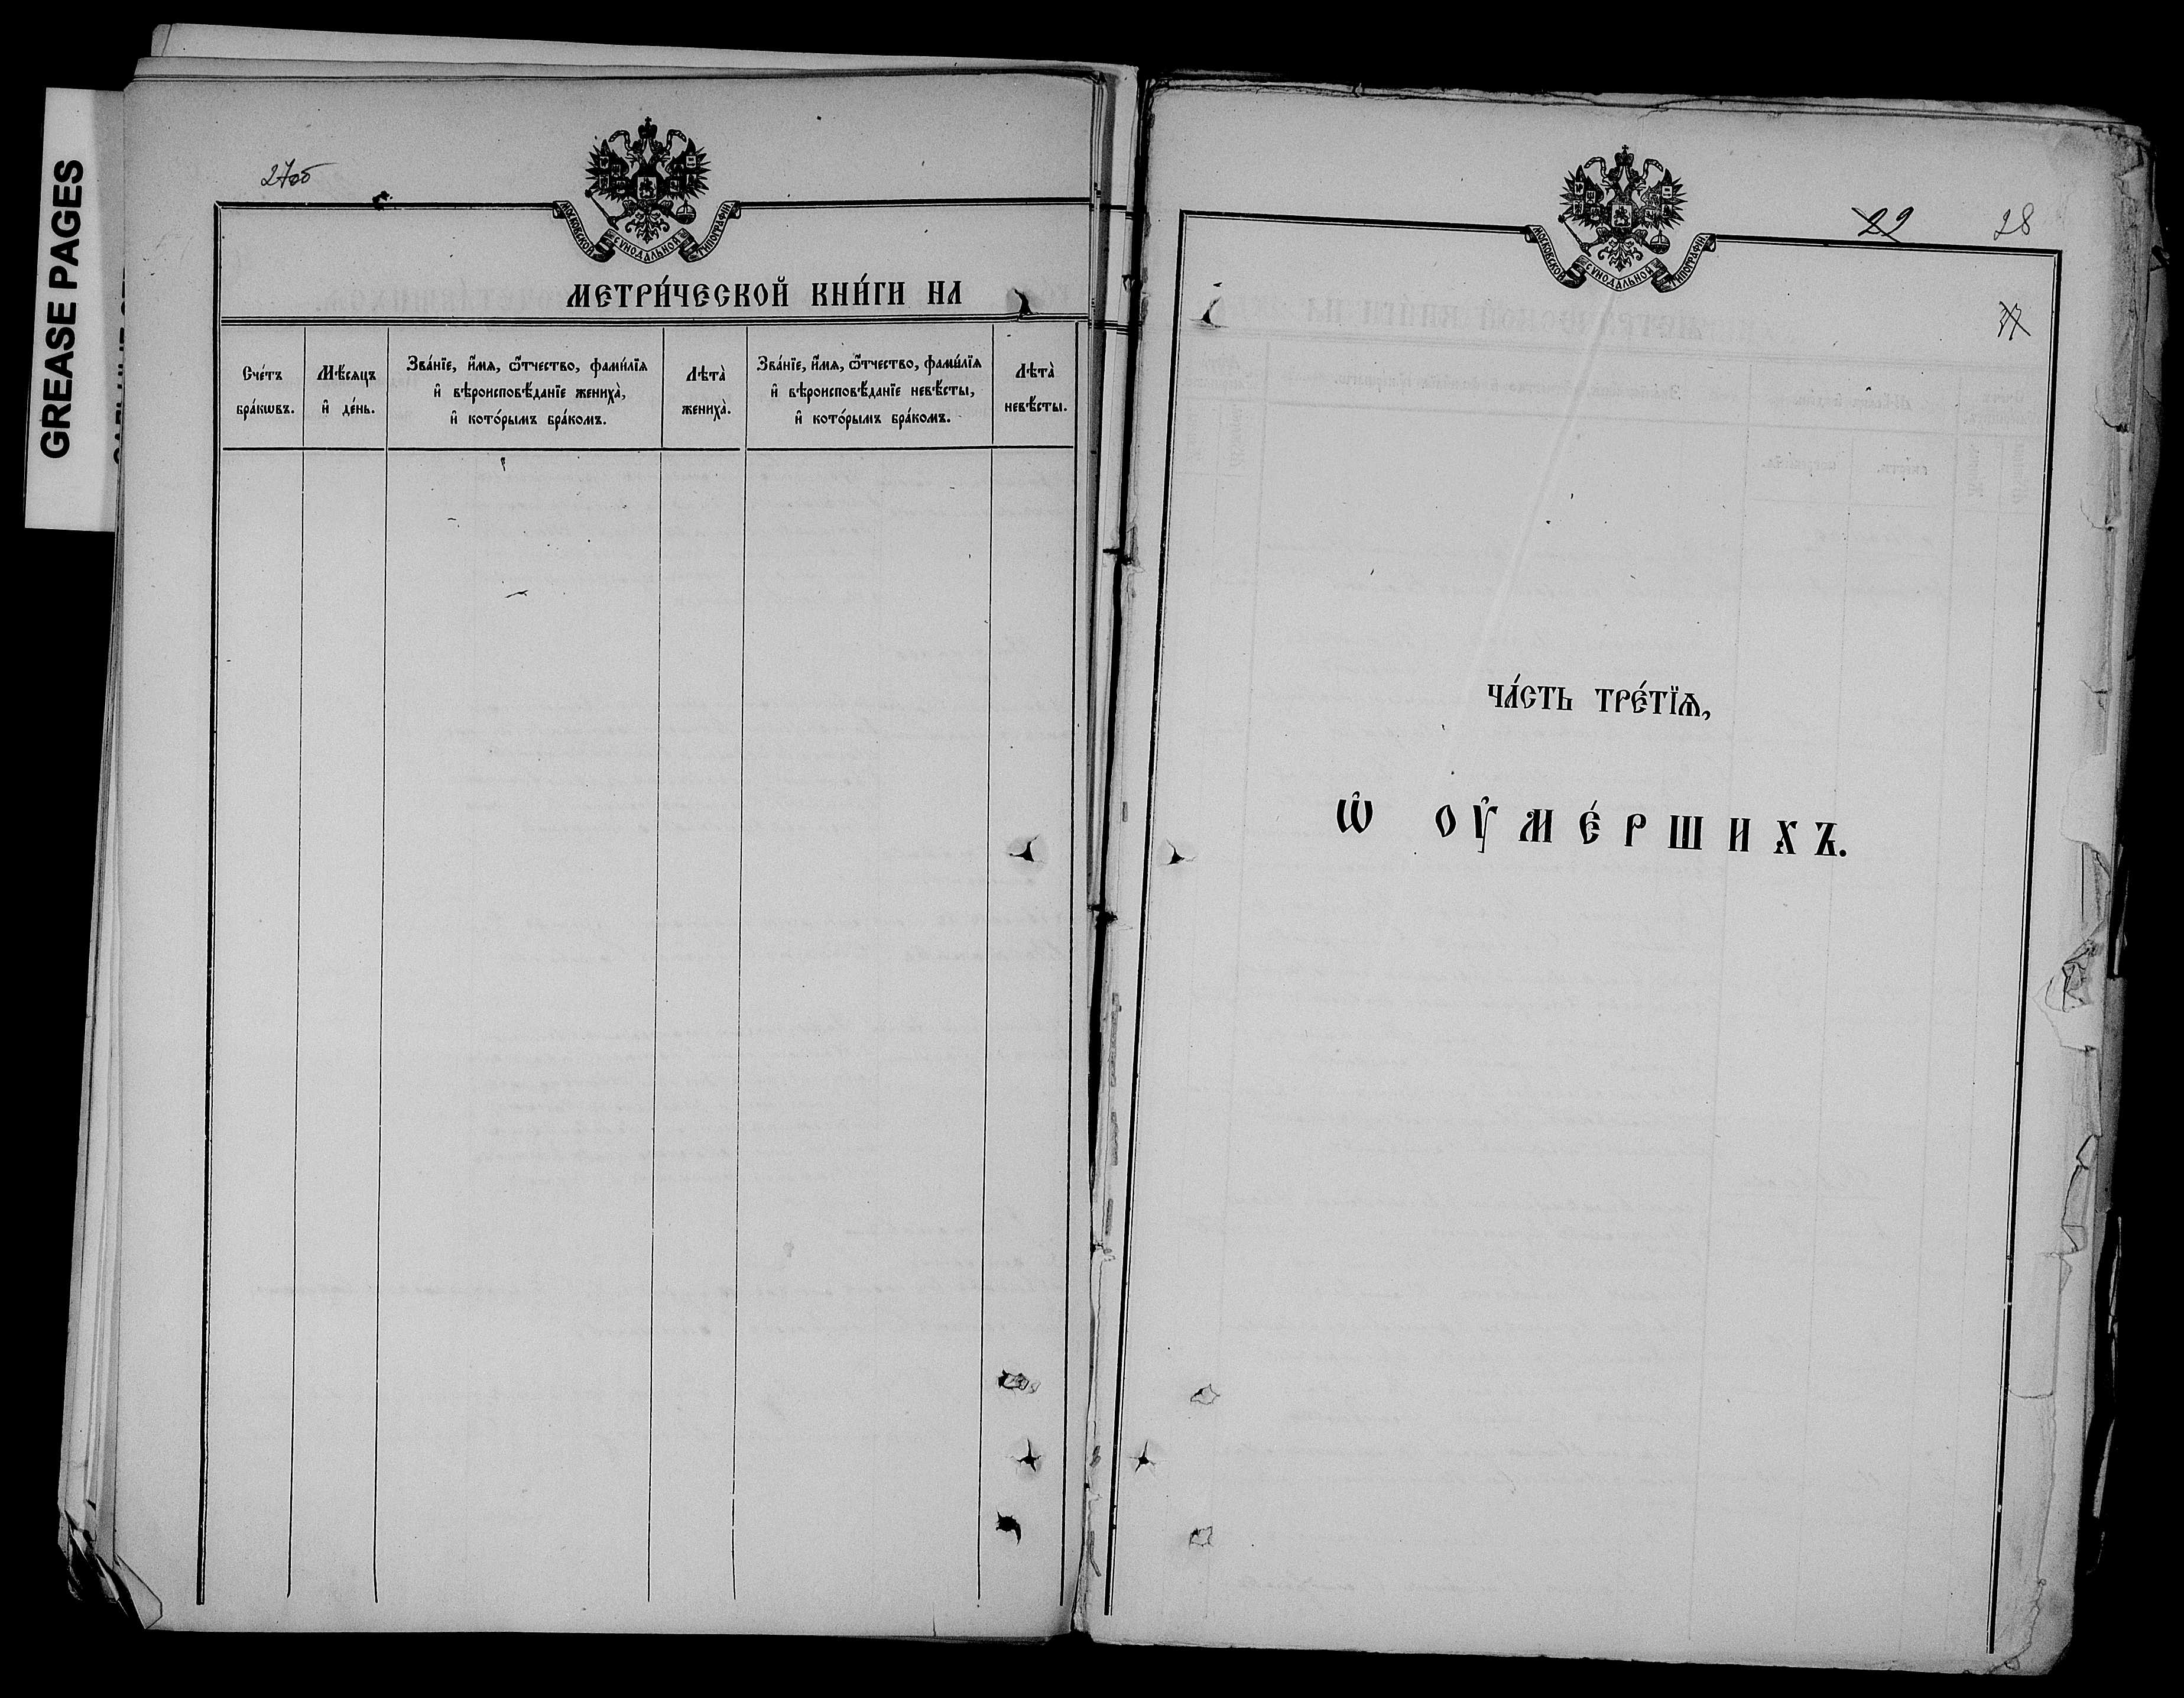 GREASE PAGES
27об
МОСКОВСКОЙ СѴНОДАЛЬНОЙ ТИПОГРАФІИ.
МЕТРИ́ЧЕСКОЙ КНИ́ГИ НА
Сче́тъ бра́кѡвъ.
Мѣ́сяцъ и҆ де́нь.
Зва́нїе, и҆́мя, ѻ҆́тчество, фами́лїя
и҆ вѣроисповѣ́данїе жениха̀,
и҆ кото́рымъ бра́комъ.
Лѣта̀
жениха̀.
Зва́нїе, и҆́мя, ѻ҆́тчество, фами́лїя
и҆ вѣроисповѣ́данїе невѣ́сты,
и҆ кото́рымъ бра́комъ.
Лѣта̀
невѣ́сты.
МОСКОВСКОЙ СѴНОДАЛЬНОЙ ТИПОГРАФІИ.
29 28
37
ЧА́СТЬ ТРЕ́ТЇѦ,
Ѡ҆ ОУ҆МЕ́РШИХЪ.